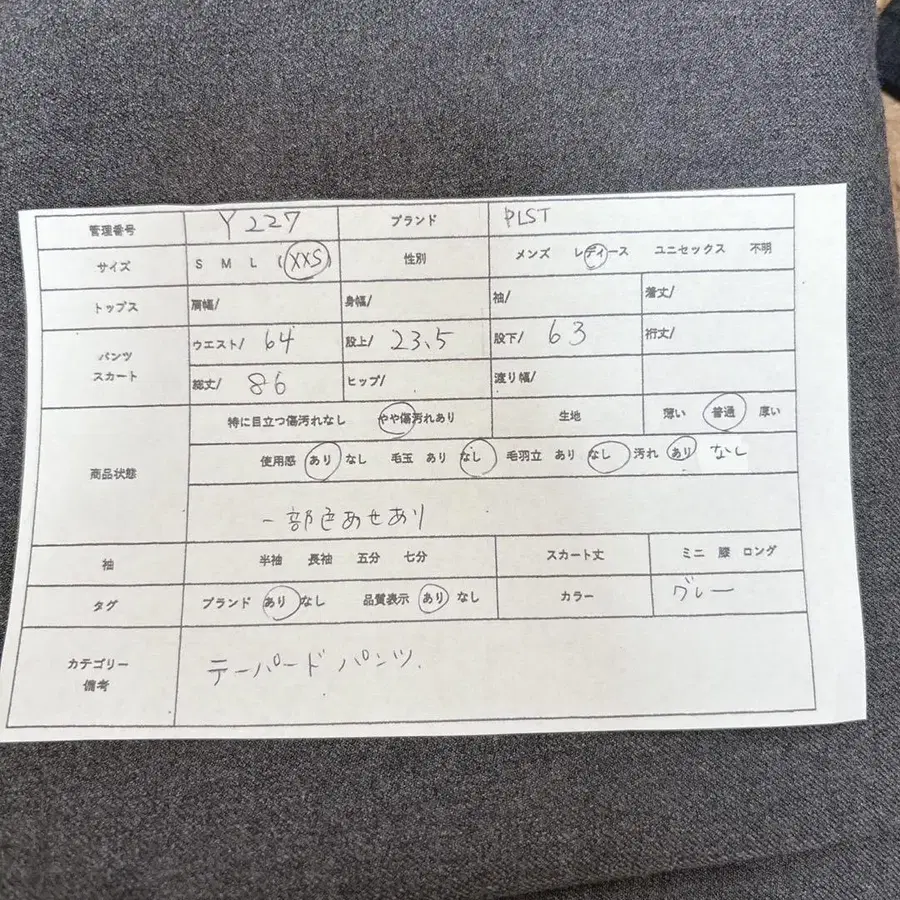 管理番号 Y227 ブランド PLST
サイズ S M L (XXS) 性別 メンズ レディース ユニセックス 不明
トップス 肩幅/ 身幅/ 袖/ 着丈/
パンツ スカート ウエスト/ 64 股上/ 23.5 股下/ 63 裄丈/
総丈/ 86 ヒップ/ 渡り幅/
商品状態 特に目立つ傷汚れなし やや傷汚れあり 生地 薄い 普通 厚い
使用感 あり なし 毛玉 あり なし 毛羽立 あり なし 汚れ あり なし
一部色あせあり
袖 半袖 長袖 五分 七分 スカート丈 ミニ 膝 ロング
タグ ブランド あり なし 品質表示 あり なし カラー グレー
カテゴリー 備考 テーパードパンツ.